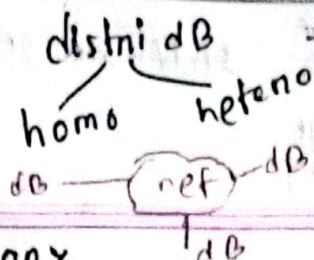 distni dB
homo
heteno
dB net dB
dB